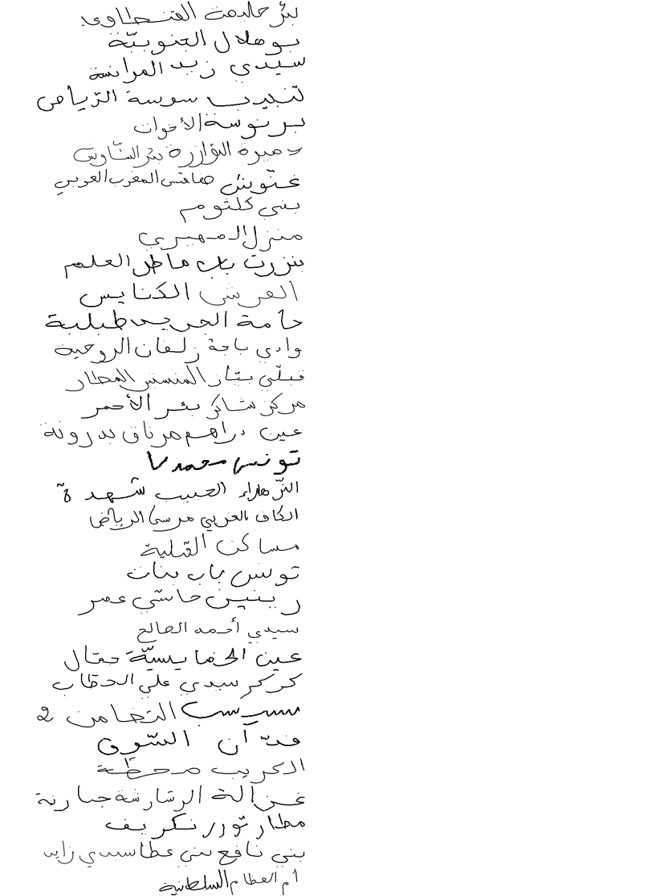 بئر حليمة القنطاوي
بوهلال الجنوبيّة
سيدي زيد العرائسة
لنبيب سوسة الرّياض
برنوسة الأخوان
دميرة التوازرة بئر الشّاوش
غنّوش صفاقس المغرب العربي
بني كلثوم
منزل المهيري
بنزرت باب ماطر العلم
العرش الكنايس
حامة الجريد طبلبة
وادي باجة زلفان الروحية
قبلّي بشّار المنستير المطار
مركز شاكر بئر الأحمر
عين دراهم مرناق بدرونة
تونس محمد V
الزّهراء الحبيب شهدة
الكاف الغربي مرسى الرياض
مساكن القبلية
تونس باب بنات
رينين حاشي عمر
سيدي أحمد الصالح
عين الخمايسيّة حفّال
كركر سيدي علي الحطاب
سبيسب التضامن 2
فدّ آن السّوق
الكريب محطّة
غزالة الرشارشة جبارنة
مطار توزر نكريف
بني نافع بني عطا سيدي زايد
أم العظام السلطانية